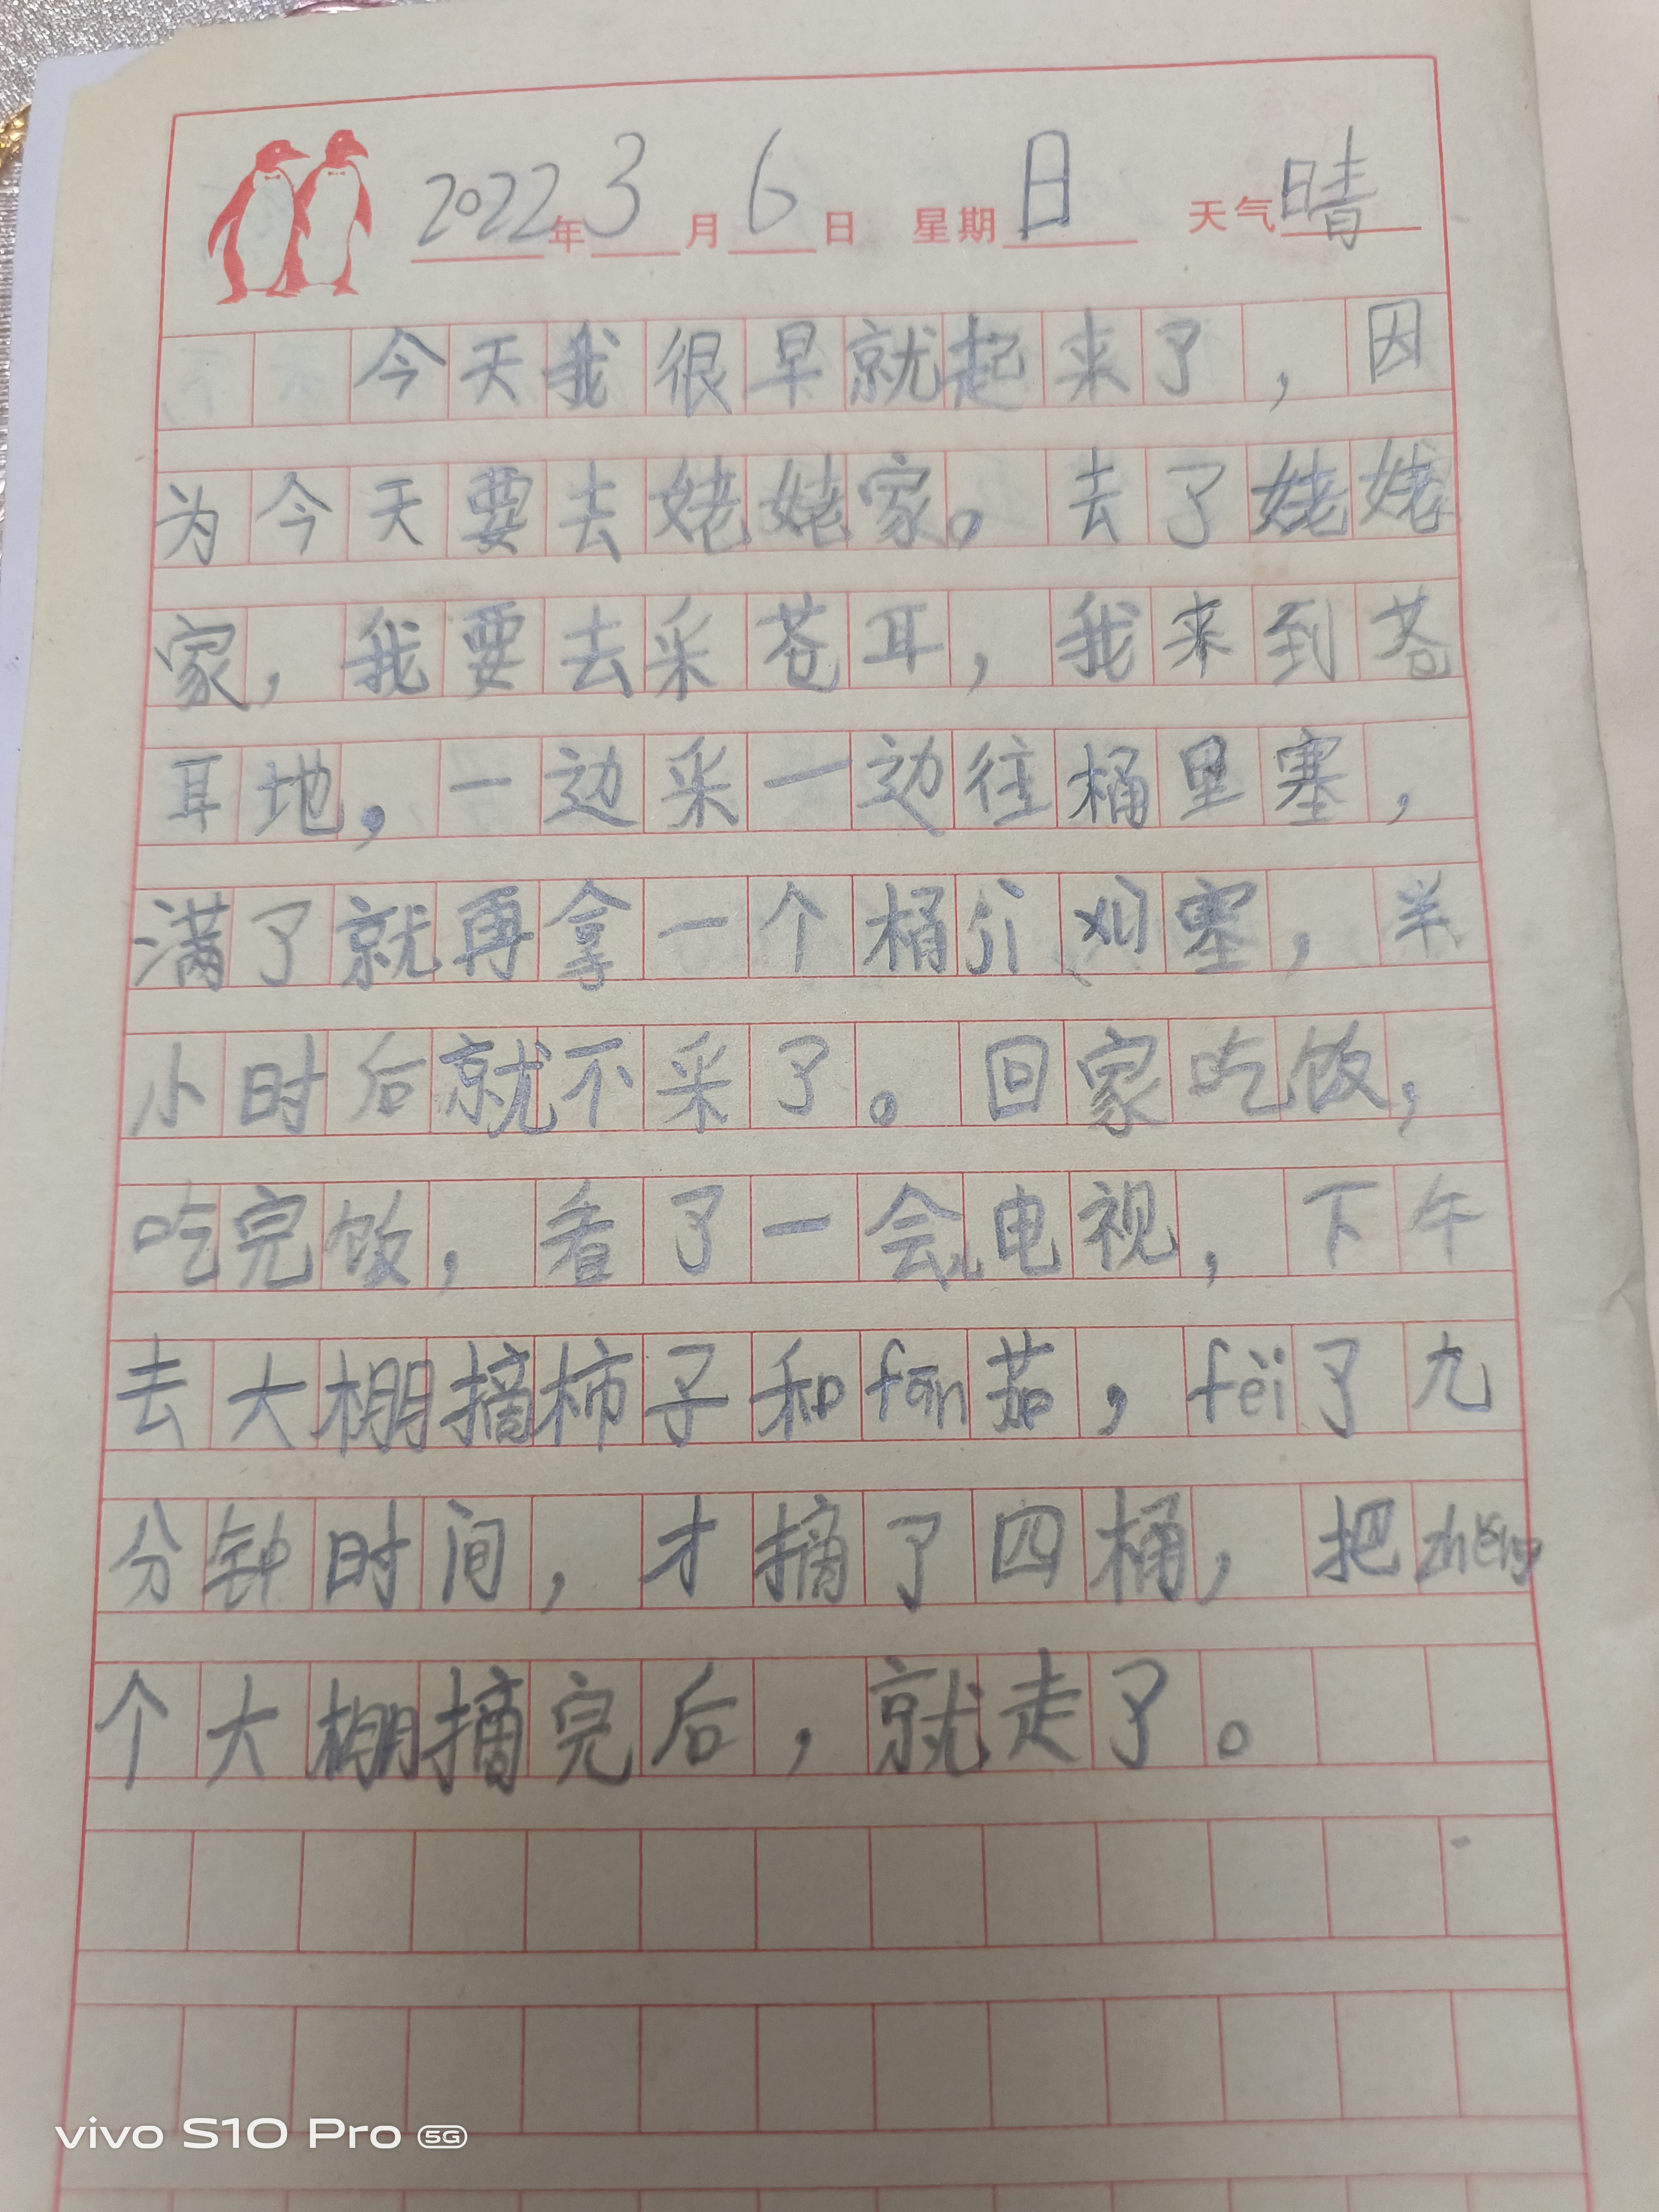 2022年3月6日 星期日 天气晴
今天我很早就起来了，因
为今天要去姥姥家。去了姥姥
家，我要去采苍耳，我来到苍
耳地，一边采一边往桶里塞，
满了就再拿一个桶 塞，半
小时后就不采了。回家吃饭，
吃完饭，看了一会儿电视，下午
去大棚摘柿子和fān茄，fèi了九
分钟时间，才摘了四桶，把zhěng
个大棚摘完后，就走了。
vivo S10 Pro 5G